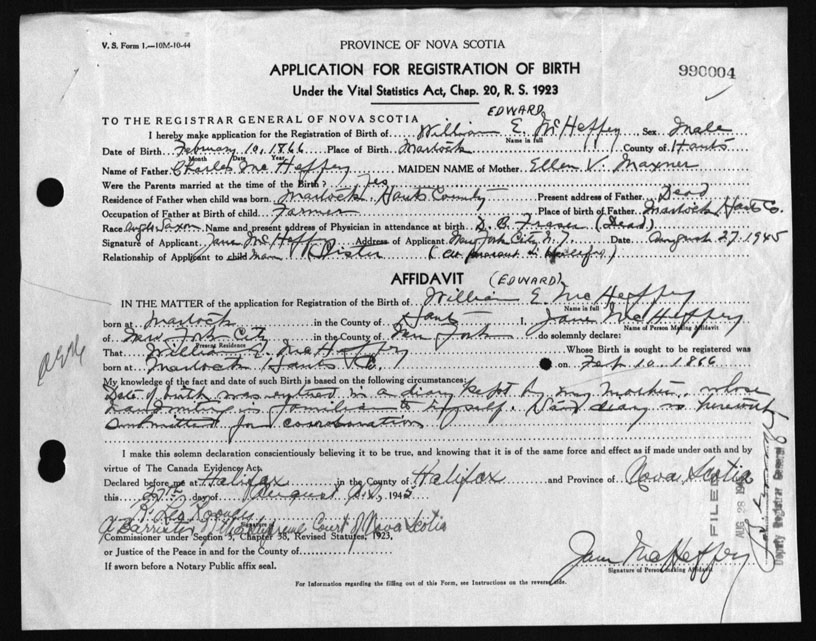 V. S. Form 1.—10M-10-44
PROVINCE OF NOVA SCOTIA
990004
APPLICATION FOR REGISTRATION OF BIRTH
Under the Vital Statistics Act, Chap. 20, R. S. 1923
EDWARD
TO THE REGISTRAR GENERAL OF NOVA SCOTIA
I hereby make application for the Registration of Birth of William E. McHeffey Sex Male
Name in full
Date of Birth February 10, 1866 Place of Birth Martock County of Hants
Month Date Year
Name of Father Charles McHeffey MAIDEN NAME of Mother Ellen V. Maxner
Were the Parents married at the time of the Birth? Yes
Residence of Father when child was born Martock, Hants County Present address of Father Dead
Occupation of Father at Birth of child Farmer Place of birth of Father Martock Hants Co.
Race Anglo Saxon Name and present address of Physician in attendance at birth D. B. Fraser (Dead)
Signature of Applicant Jane McHeffey Address of Applicant New York City N.Y. Date August 27, 1945
Relationship of Applicant to child Sister (at present in Halifax)
AFFIDAVIT (EDWARD)
IN THE MATTER of the application for Registration of the Birth of William E. McHeffey
Name in full
born at Martock in the County of Hants I, Jane McHeffey
Name of Person Making Affidavit
of New York City in the County of New York do solemnly declare:
Present Residence
That William E. McHeffey Whose Birth is sought to be registered was
born at Martock Hants Co. on Feb. 10, 1866
My knowledge of the fact and date of such Birth is based on the following circumstances:
Date of birth was entered in a diary kept by my mother, whose
handwriting is familiar to myself. Said diary is herewith
submitted for corroboration
I make this solemn declaration conscientiously believing it to be true, and knowing that it is of the same force and effect as if made under oath and by
virtue of The Canada Evidence Act.
Declared before me at Halifax in the County of Halifax and Province of Nova Scotia
this 27th day of August A.D. 1945
Signature
A Barrister of the Supreme Court of Nova Scotia
Commissioner under Section 3, Chapter 38, Revised Statutes, 1923,
or Justice of the Peace in and for the County of
If sworn before a Notary Public affix seal.
Jane McHeffey
Signature of Person making Affidavit
For Information regarding the filling out of this Form, see Instructions on the reverse side.
FILED
AUG 28 19
Deputy Registrar General